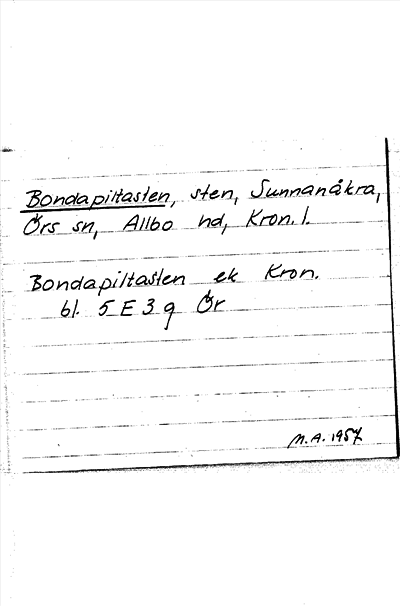 Bondapiltasten, sten, Sunnanåkra,
Örs sn, Allbo hd, Kron. l.
Bondapiltasten ek Kron.
bl. 5 E 3 g Ör
M.A. 1957